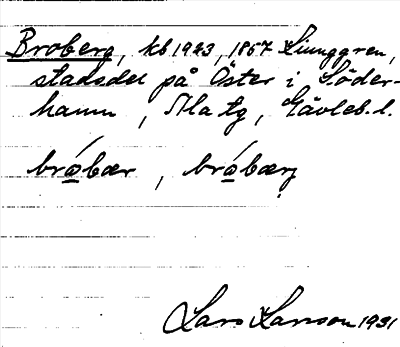 Broberg, kb 1923, 1857 Ljunggren,
stadsdel på Öster i Söder-
hamn, Ala tg, Gävleb. l.
bro̲bær, bro̲bærj
Lars Larsson 1931